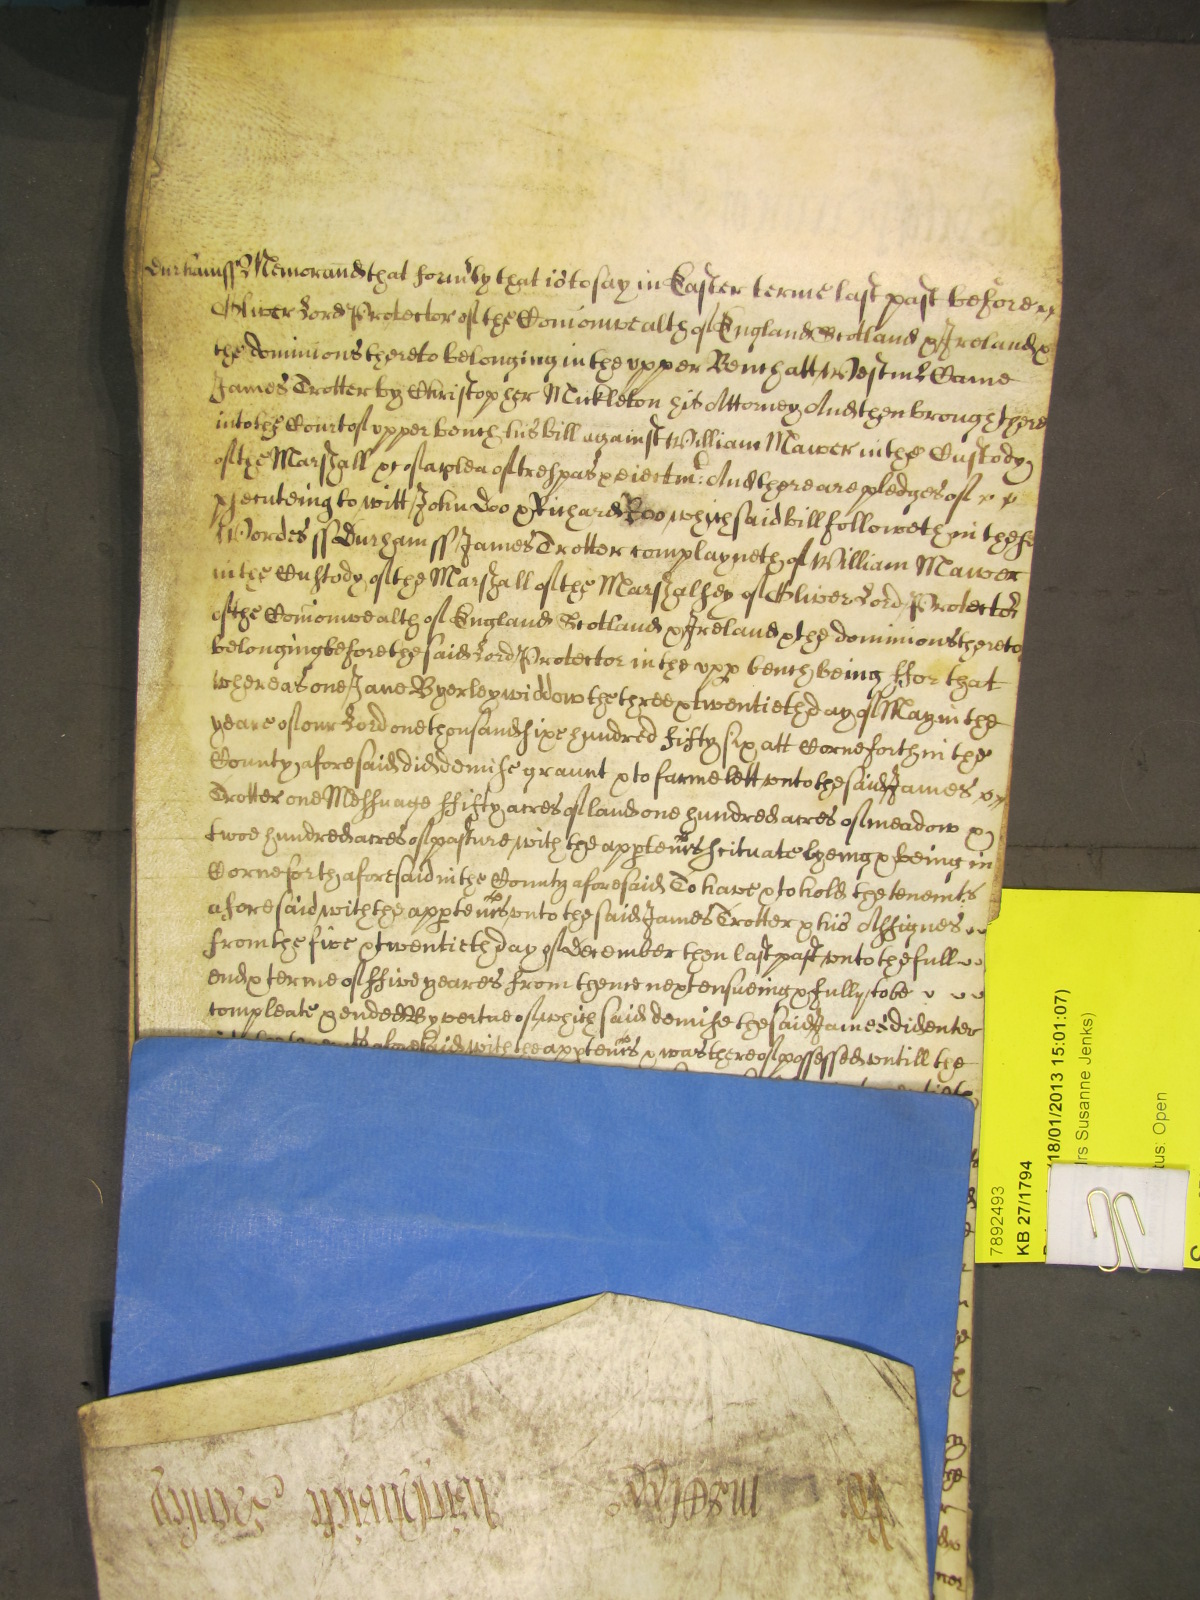 Durham ss Memorand that form'ly that is to say in Easter terme last past before
Oliver Lord Protector of the Comonwealth of England Scotland & Ireland &
the dominions thereto belonging in the upper Bench att Westm' Came
James Trotter by Christopher Mickleton his Attorney And then brought there
into the Court of upper bench his bill against William Mawer in the Custody
of the Marshall &c of a plea of trespas & eiectmt: And there are pledges of
p'secuteing to witt John Doo & Richard Roo which said bill followeth in these
Wordes ss Durham ss James Trotter complayneth of William Mawer
in the Custody of the Marshall of the Marshalsey of Oliver Lord Protector
of the Comonwealth of England Scotland & Ireland & the dominions thereto
belonging before the said Lord Protector in the upp bench being ffor that
whereas one Jane Byerley widdow the three & twentieth day of May in the
yeare of our Lord one thousand sixe hundred fifty six att Corneforth in the
County aforesaid did demise graunt & to farme lett unto the said James
Trotter one Messuage ffifty acres of land one hundred acres of meadow &
twoe hundred acres of pasture with the appten'nces scituate lyeing & being in
Corneforth aforesaid in the County aforesaid To have & to hold the tenemts
aforesaid with the appten'nces unto the said James Trotter & his Assignes
from the five & twentieth day of December then last past unto the full
end & terme of ffive yeares from thence next ensueing & fully to be
compleate & ended By vertue of which said demise the said James did enter
aforesaid with the appten'nces & was thereof possessed untill the
7892493
KB 27/1794
(18/01/2013 15:01:07)
rs Susanne Jenks)
tus: Open